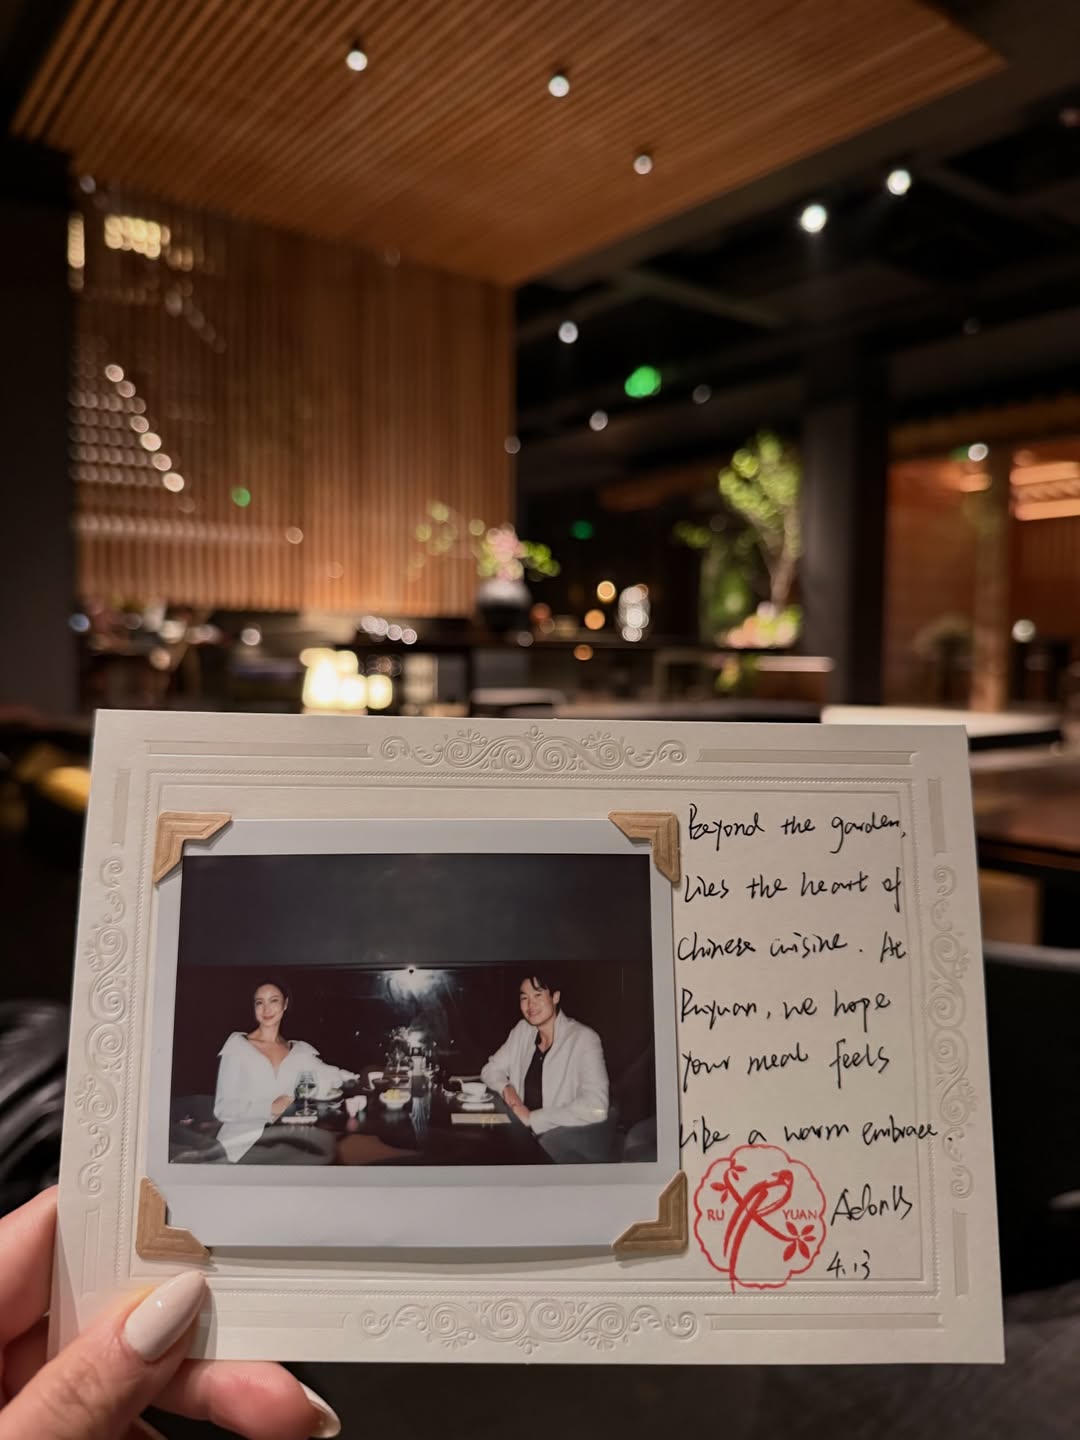 Beyond the garden,
lies the heart of
Chinese cuisine. At
Ruyuan, we hope
your meal feels
like a warm embrace.
RU YUAN
Adonis
4.13